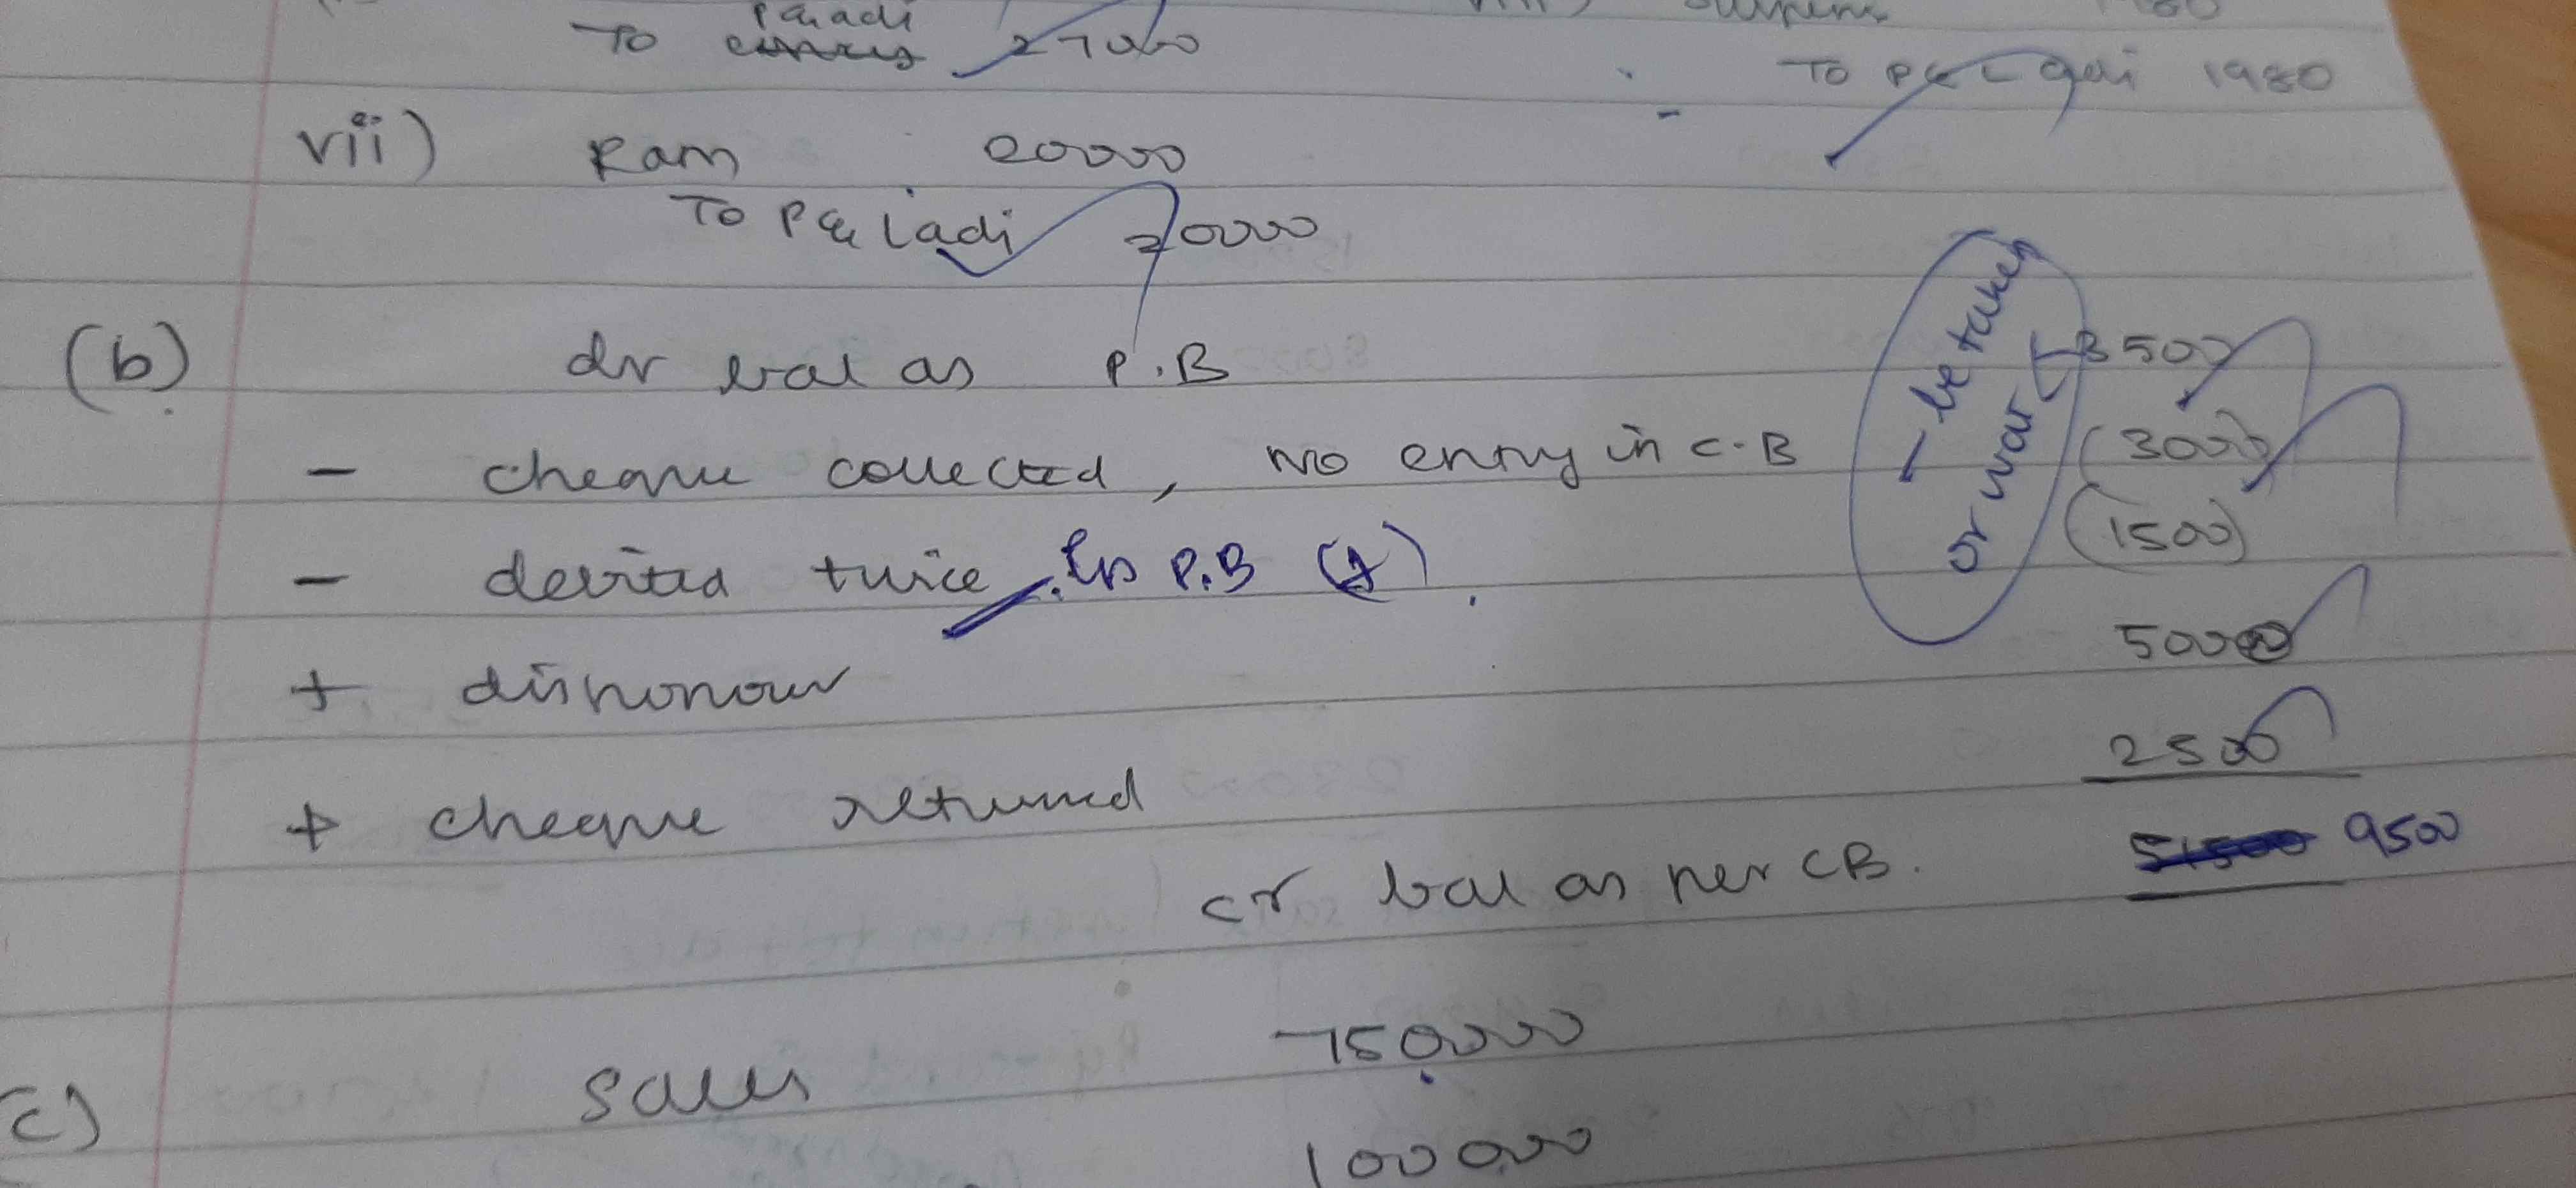 P&L adi
To 27000
Suspense 1980
To P&L adj 1980
vii) Ram 20000
To P&L adj 20000
(b) dr bal as P.B 8500
- cheque collected, no entry in C.B (3000)
- debited twice in P.B (1500)
- be taken
or wat
+ dishonour 5000
+ cheque returned 2500
cr bal as per CB. 9500
c) sales 750000
100000